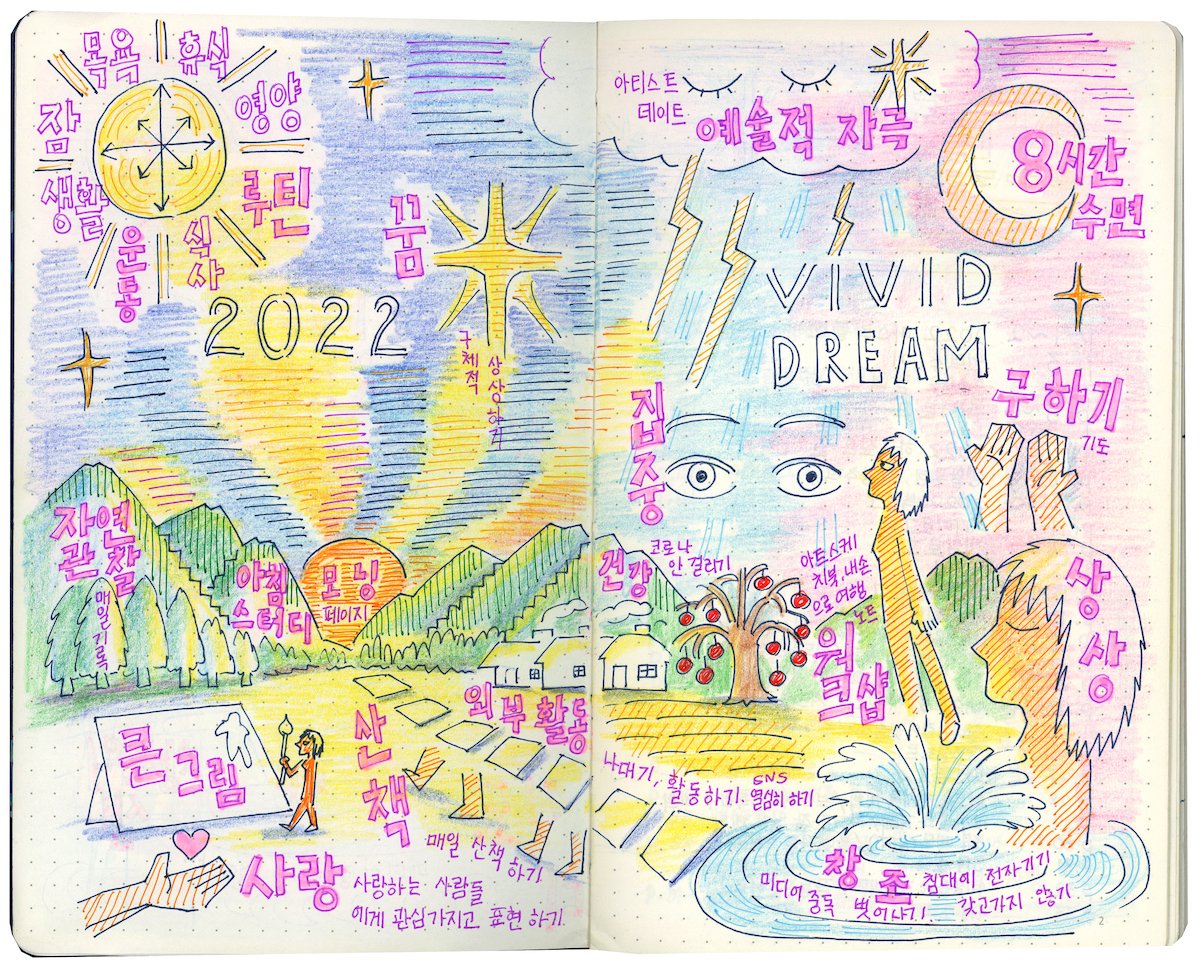 목욕
휴식
잠
영양
생활
루틴
운동
식사
꿈
2022
구체적
상상하기
자연
관찰
매일기록
아침
스터디
모닝
페이지
큰그림
산책
외부활동
매일 산책하기
사랑
사랑하는 사람들
에게 관심가지고 표현하기.
아티스트
데이트
예술적 자극
8시간
수면
VIVID
DREAM
집중
구하기
기도
건강
코로나
안 걸리기
아트스케
치북, 내손
으로 여행
노트
워크샵
상상
나대기, 활동하기. SNS
열심히 하기
창조
미디어
중독 벗어나기.
침대에 전자기기
갖고가지 않기
2